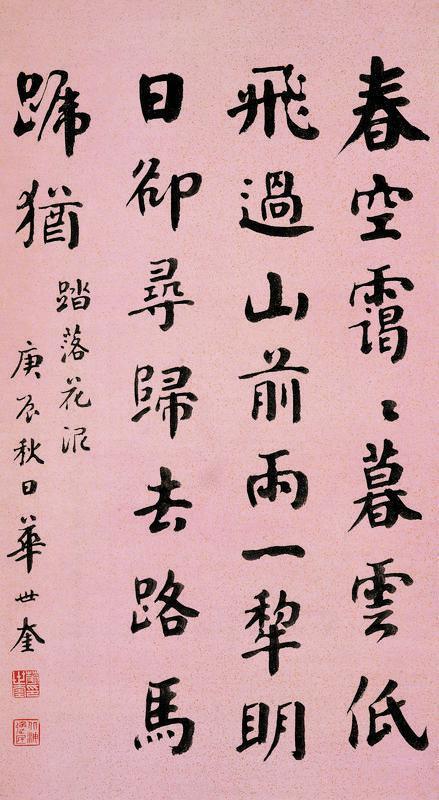 春空霭〻暮雲低
飛過山前雨一犂明
日卻尋歸去路馬
蹄猶
踏落花泥
庚辰秋日華世奎